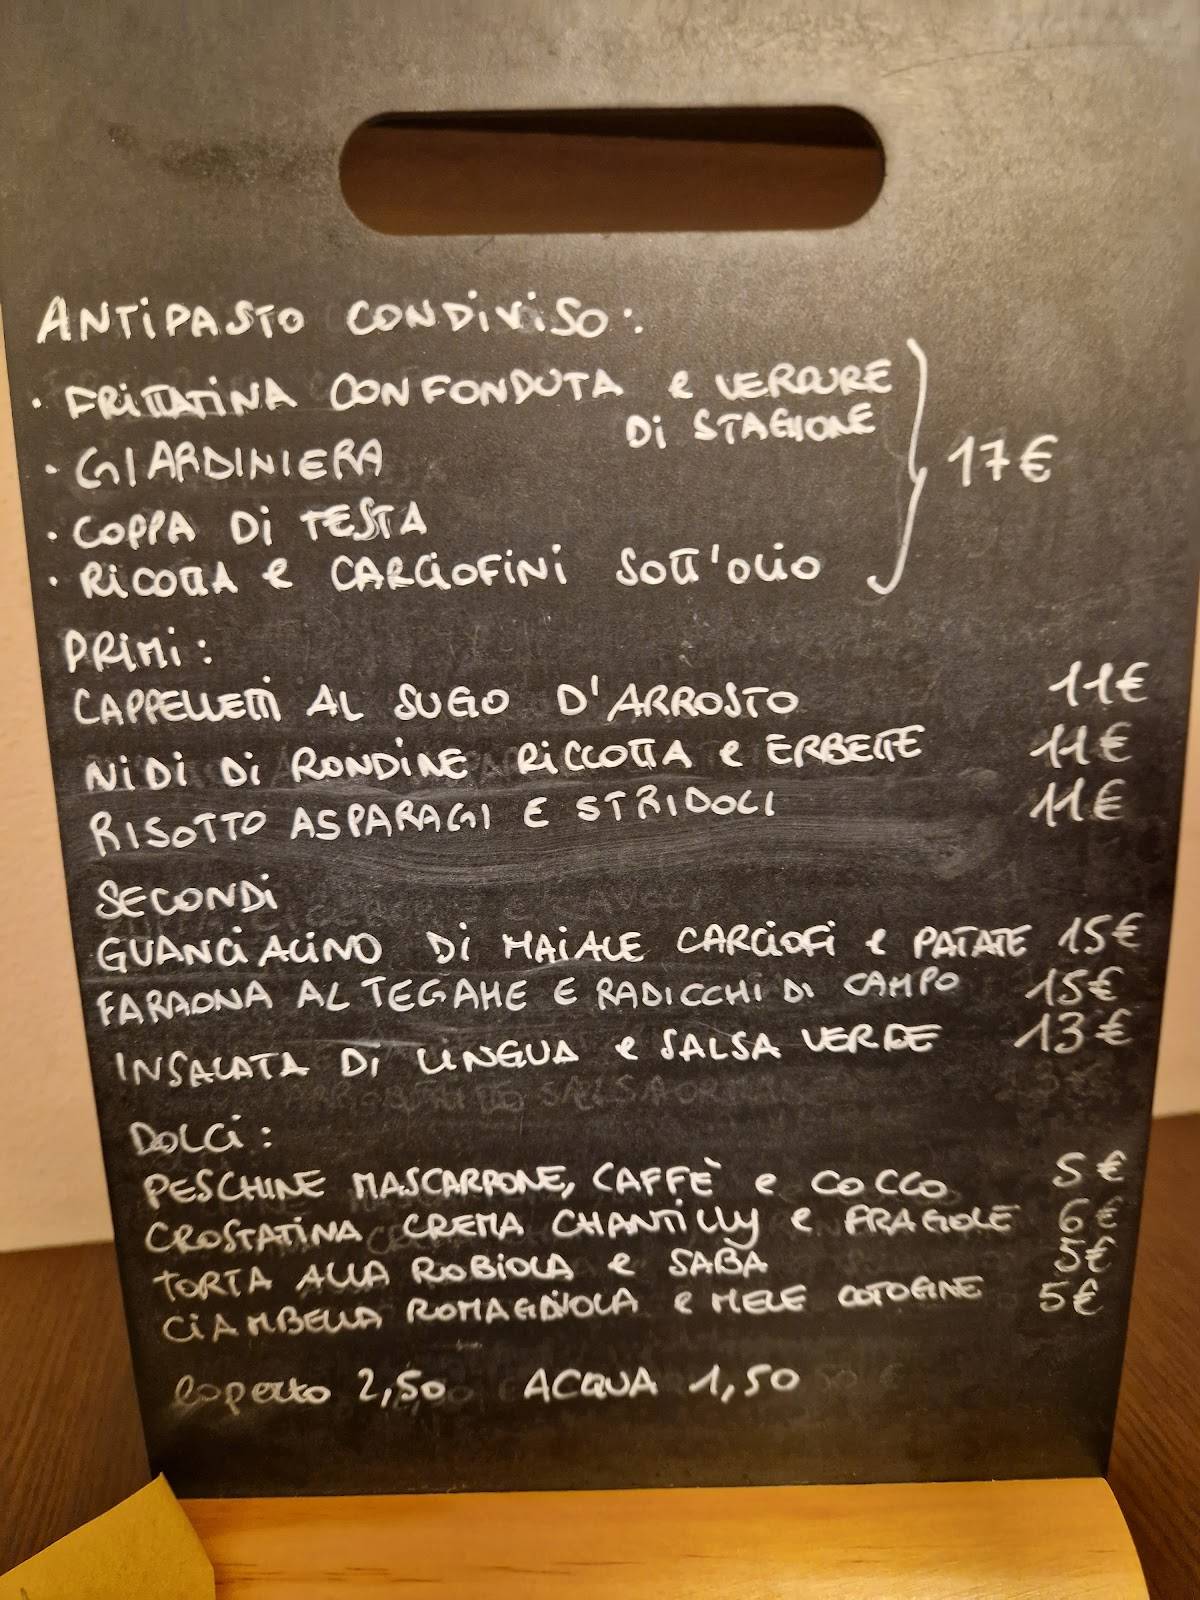 ANTIPASTO CONDIVISO:
· FRITTATINA CON FONDUTA e VERDURE
DI STAGIONE
· GIARDINIERA
· COPPA DI TESTA
· RICOTTA e CARCIOFINI SOTT'OLIO
17€
PRIMI:
CAPPELLETTI AL SUGO D'ARROSTO 11€
NIDI DI RONDINE RICCOTTA e ERBETTE 11€
RISOTTO ASPARAGI E STRIDOLI 11€
SECONDI
GUANCIALINO DI MAIALE CARCIOFI e PATATE 15€
FARAONA AL TEGAME E RADICCHI DI CAMPO 15€
INSALATA DI LINGUA e SALSA VERDE 13€
DOLCI:
PESCHINE MASCARPONE, CAFFÈ e COCCO 5€
CROSTATINA CREMA CHANTILLY e FRAGOLE 6€
TORTA ALLA ROBIOLA e SABA 5€
CIAMBELLA ROMAGNOLA e MELE COTOGNE 5€
Coperto 2,50 ACQUA 1,50